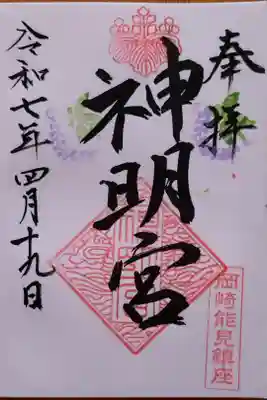 奉拝
神明宮
岡崎能見鎮座
令和七年四月十九日